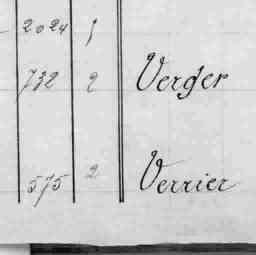 2024 1
732 2 Verger
575 2 Verrier